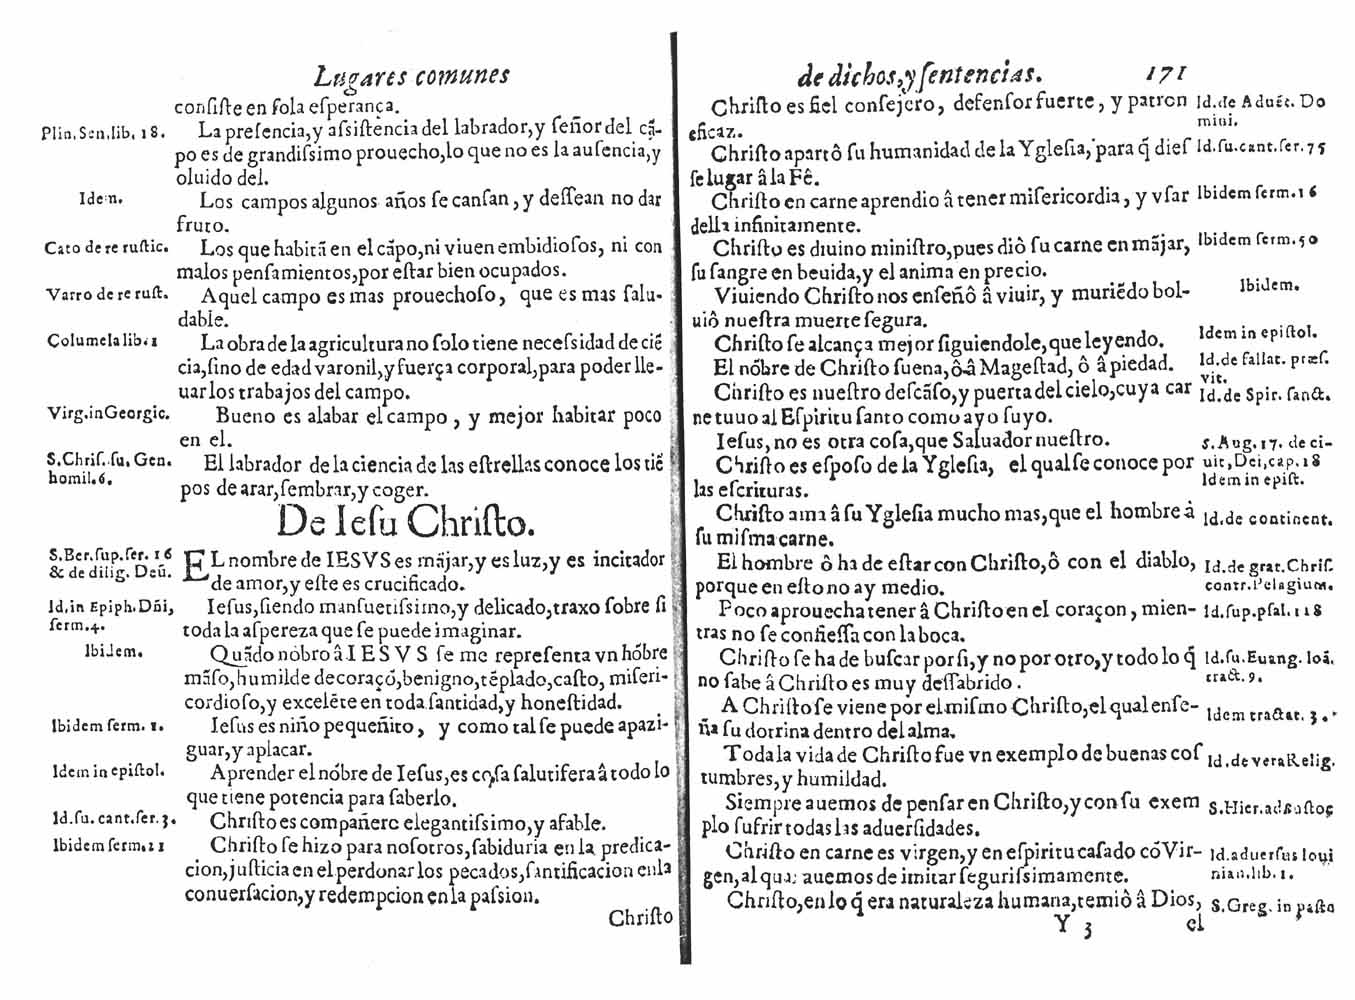 Lugares comunes
conſiſte en ſola eſperança.
Plin. Sen. lib. 18. La preſencia, y aſsiſtẽcia del labrador, y ſeñor del cã-
po es de grandiſsimo prouecho, lo que no es la auſencia, y
oluido del.
Idem. Los campos algunos años ſe canſan, y deſſean no dar
fruto.
Cato de re ruſtic. Los que habitã en el cãpo, ni viuen embidioſos, ni con
malos penſamientos, por eſtar bien ocupados.
Varro de re ruſt. Aquel campo es mas prouechoſo, que es mas ſalu-
dable.
Columela lib. 1 La obra de la agricultura no ſolo tiene neceſsidad de ciẽ
cia, ſino de edad varonil, y fuerça corporal, para poder lle-
uar los trabajos del campo.
Virg. in Georgic. Bueno es alabar el campo, y mejor habitar poco
en el.
S. Chriſ. ſu. Gen. El labrador de la ciencia de las eſtrellas conoce los tiẽ
homil. 6. pos de arar, ſembrar, y coger.
De Ieſu Chriſto.
S. Ber. ſup. ſer. 16 EL nombre de IESVS es mãjar, y es luz, y es incitador
& de dilig. Deũ. de amor, y eſte es crucificado.
Id. in Epiph. Dñi, Ieſus, ſiendo manſuetiſsimo, y delicado, traxo ſobre ſi
ſerm. 4. toda la aſpereza que ſe puede imaginar.
Ibidem. Quãdo nõbro â IESVS ſe me repreſenta vn hõbre
mãſo, humilde de coraçõ, benigno, tẽplado, caſto, miſeri-
cordioſo, y excelẽte en toda ſantidad, y honeſtidad.
Ibidem ſerm. 1. Ieſus es niño pequeñito, y como tal ſe puede apazi-
guar, y aplacar.
Idem in epiſtol. Aprender el nõbre de Ieſus, es coſa ſalutifera â todo lo
que tiene potencia para ſaberlo.
Id. ſu. cant. ſer. 3. Chriſto es compañero elegantiſsimo, y afable.
Ibidem ſerm. 21 Chriſto ſe hizo para noſotros, ſabiduria en la predica-
cion, juſticia en el perdonar los pecados, ſantificacion en la
conuerſacion, y redempcion en la paſsion.
Chriſto
de dichos, y ſentencias. 171
Chriſto es fiel conſejero, defenſor fuerte, y patron Id. de Aduẽt. Do
eficaz. mini.
Chriſto apartô ſu humanidad de la Ygleſia, para q̃ dieſ Id. ſu. cant. ſer. 75
ſe lugar â la Fê.
Chriſto en carne aprendio â tener miſericordia, y vſar Ibidem ſerm. 16
della infinitamente.
Chriſto es diuino miniſtro, pues diô ſu carne en mãjar, Ibidem ſerm. 50
ſu ſangre en beuida, y el anima en precio.
Viuiendo Chriſto nos enſeñô â viuir, y muriẽdo bol- Ibidem.
uiô nueſtra muerte ſegura.
Chriſto ſe alcança mejor ſiguiendole, que leyendo. Idem in epiſtol.
El nõbre de Chriſto ſuena, ô â Mageſtad, ô â piedad. Id. de fallat. præſ.
vit.
Chriſto es nueſtro deſcãſo, y puerta del cielo, cuya car Id. de Spir. ſanct.
ne tuuo al Eſpiritu ſanto como ayo ſuyo.
Ieſus, no es otra coſa, que Saluador nueſtro. S. Aug. 17. de ci-
Chriſto es eſpoſo de la Ygleſia, el qual ſe conoce por uit, Dei, cap. 18
las eſcrituras. Idem in epiſt.
Chriſto ama â ſu Ygleſia mucho mas, que el hombre â Id. de continent.
ſu miſma carne.
El hombre ô ha de eſtar con Chriſto, ô con el diablo, Id. de grat. Chriſ.
porque en eſto no ay medio. contr. Pelagium.
Poco aprouecha tener â Chriſto en el coraçon, mien- Id. ſup. pſal. 118
tras no ſe confieſſa con la boca.
Chriſto ſe ha de buſcar por ſi, y no por otro, y todo lo q̃ Id. ſu. Euang. Ioã.
no ſabe â Chriſto es muy deſſabrido. tract. 9.
A Chriſto ſe viene por el miſmo Chriſto, el qual enſe- Idem tractat. 3.
ña ſu dotrina dentro del alma.
Toda la vida de Chriſto fue vn exemplo de buenas coſ Id. de vera Relig.
tumbres, y humildad.
Siempre auemos de penſar en Chriſto, y con ſu exem S. Hier. ad
plo ſufrir todas las aduerſidades.
Chriſto en carne es virgen, y en eſpiritu caſado cõ Vir- Id. aduerſus Ioui
gen, al qual auemos de imitar ſeguriſsimamente. nian. lib. 1.
Chriſto, en lo q̃ era naturaleza humana, temiô â Dios, S. Greg. in paſto
Y 3 el